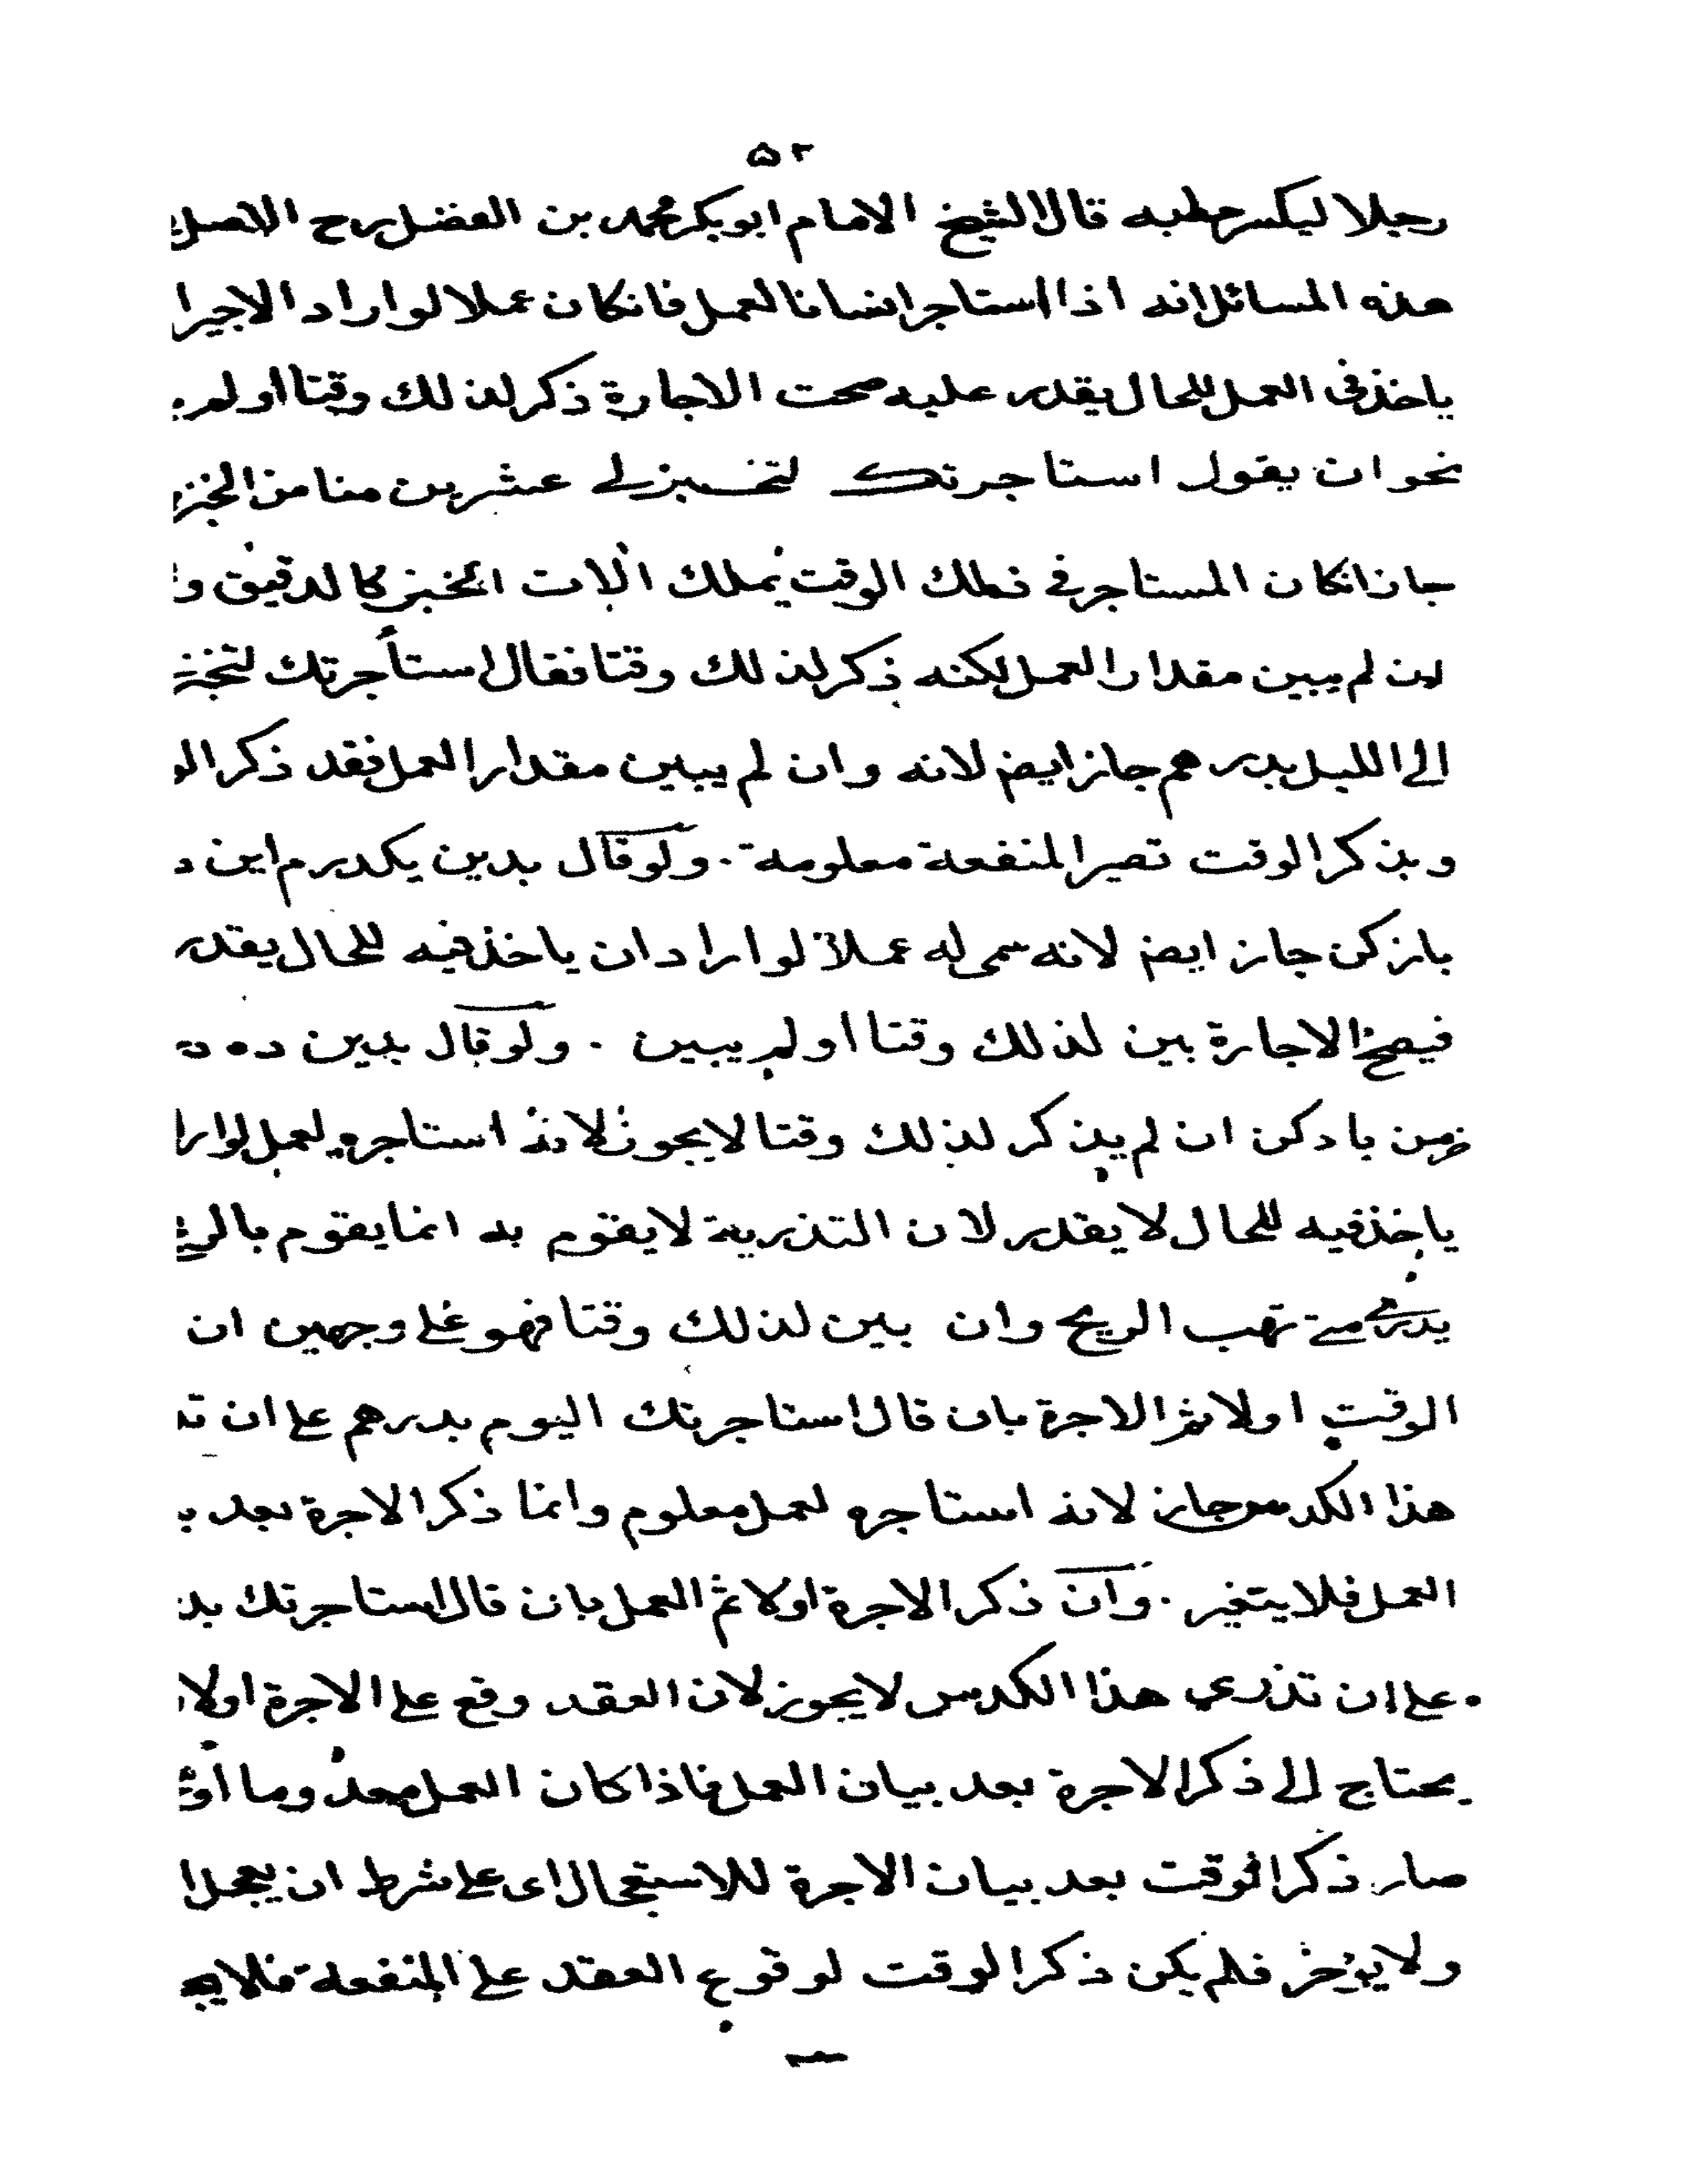 ٥٢
رجلا ليكسر حطبه قال الشيخ الامام ابو بكر محمد بن الفضل رح الاصل
هذه المسائل انه اذا استاجر انسانا لعمل فانكان عملا لو اراد الاجير ا
ياخذ فى العمل للحال يقدر عليه صحت الاجارة ذكر لذلك وقتا او لم
نحو ان يقول استاجرتك لتخبز لي عشرين منا من الخبز
جاز انكان المستاجر في ذلك الوقت يملك الات الخبز كالدقيق و
لم يبين مقدار العمل لكنه ذكر لذلك وقتا فقال استأجرتك لتخبز
الى الليل بدرهم جاز ايضا لانه وان لم يبين مقدار العمل فقد ذكر الو
وبذكر الوقت تصير المنفعة معلومة . ولو قال بدين يكدرم اين د
باز كن جاز ايضا لانه سمى له عملا لو اراد ان ياخذ فيه للحال يقدر
فيصح الاجارة بين لذلك وقتا او لم يبين . ولو قال بدين ده د
بادكن ان لم يذكر لذلك وقتا لا يجوز لانه استاجره لعمل لو ارا
ياخذ فيه للحال لا يقدر لان التذرية لا يقوم به انما يقوم بالري
يدرى متى تهب الريح وان بين لذلك وقتا فهو على وجهين ان
الوقت اولا ثم الاجرة بان قال استاجرتك اليوم بدرهم على ان تد
هذا الكدس جاز لانه استاجره لعمل معلوم وانما ذكر الاجرة بعد ب
العمل فلا يتغير . وان ذكر الاجرة اولا ثم العمل بان قال استاجرتك بد
على ان تذري هذا الكدس لا يجوز لان العقد وقع على الاجرة اولا
يحتاج الى ذكر الاجرة بعد بيان العمل فاذا كان العمل معدوما او
صار ذكر الوقت بعد بيان الاجرة للاستعجال اى على شرط ان يعجل ا
ولا يؤخر فلم يكن ذكر الوقت لوقوع العقد على المنفعة فلا يج